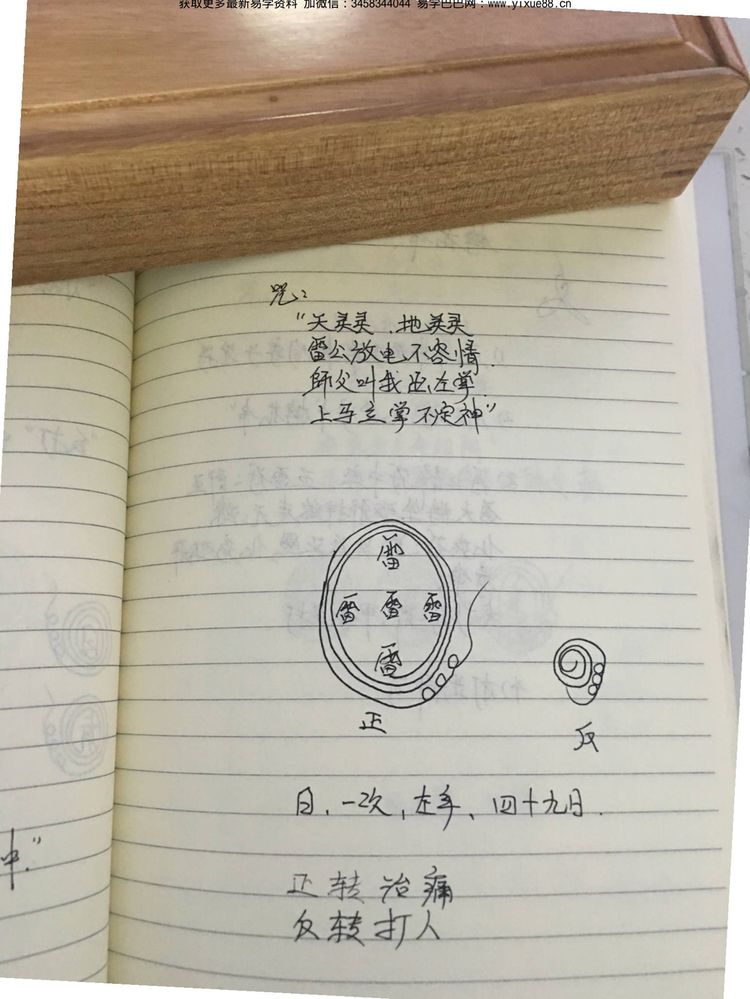 获取更多最新易学资料 加微信：3458344044 易学巴巴网：www.yixue88.cn
咒：
“天灵灵．地灵灵
雷公放电不容情
師父叫我 左掌
上马 掌不 神”
雷
雷 雷 雷
雷
正
反
日、一次，左手、四十九日．
正转治痛
反转打人